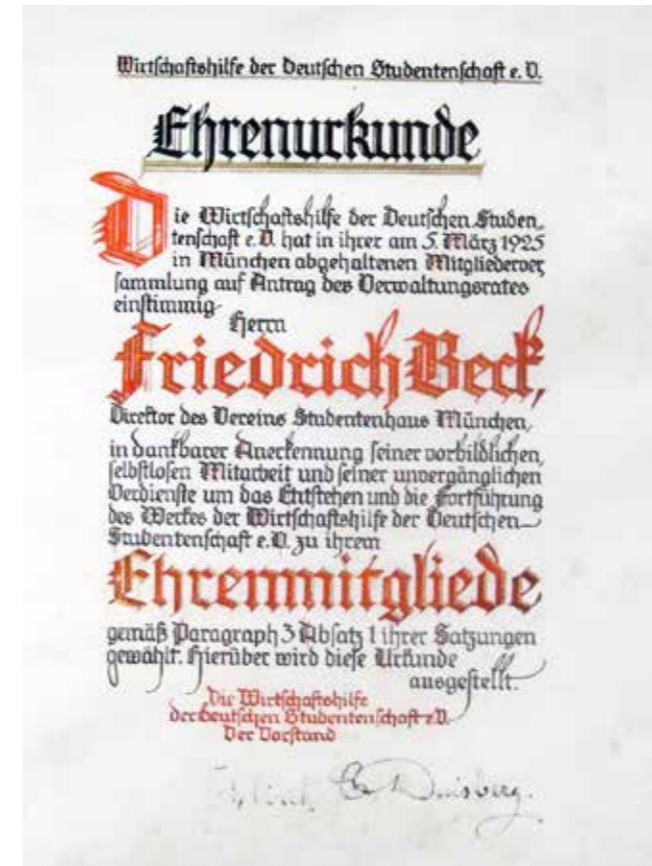 Wirtschaftshilfe der Deutschen Studentenschaft e. V.
Ehrenurkunde
Die Wirtschaftshilfe der Deutschen Studen-
tenschaft e. V. hat in ihrer am 5. März 1925
in München abgehaltenen Mitgliederver-
sammlung auf Antrag des Verwaltungsrates
einstimmig
Herrn
Friedrich Beck,
Direktor des Vereins Studentenhaus München,
in dankbarer Anerkennung seiner vorbildlichen,
selbstlosen Mitarbeit und seiner unvergänglichen
Verdienste um das Entstehen und die Fortführung
des Werkes der Wirtschaftshilfe der Deutschen
Studentenschaft e. V. zu ihrem
Ehrenmitgliede
gemäß Paragraph 3 Absatz 1 ihrer Satzungen
gewählt. Hierüber wird diese Urkunde
ausgestellt.
Die Wirtschaftshilfe
der Deutschen Studentenschaft e. V.
Der Vorstand
Duisberg.